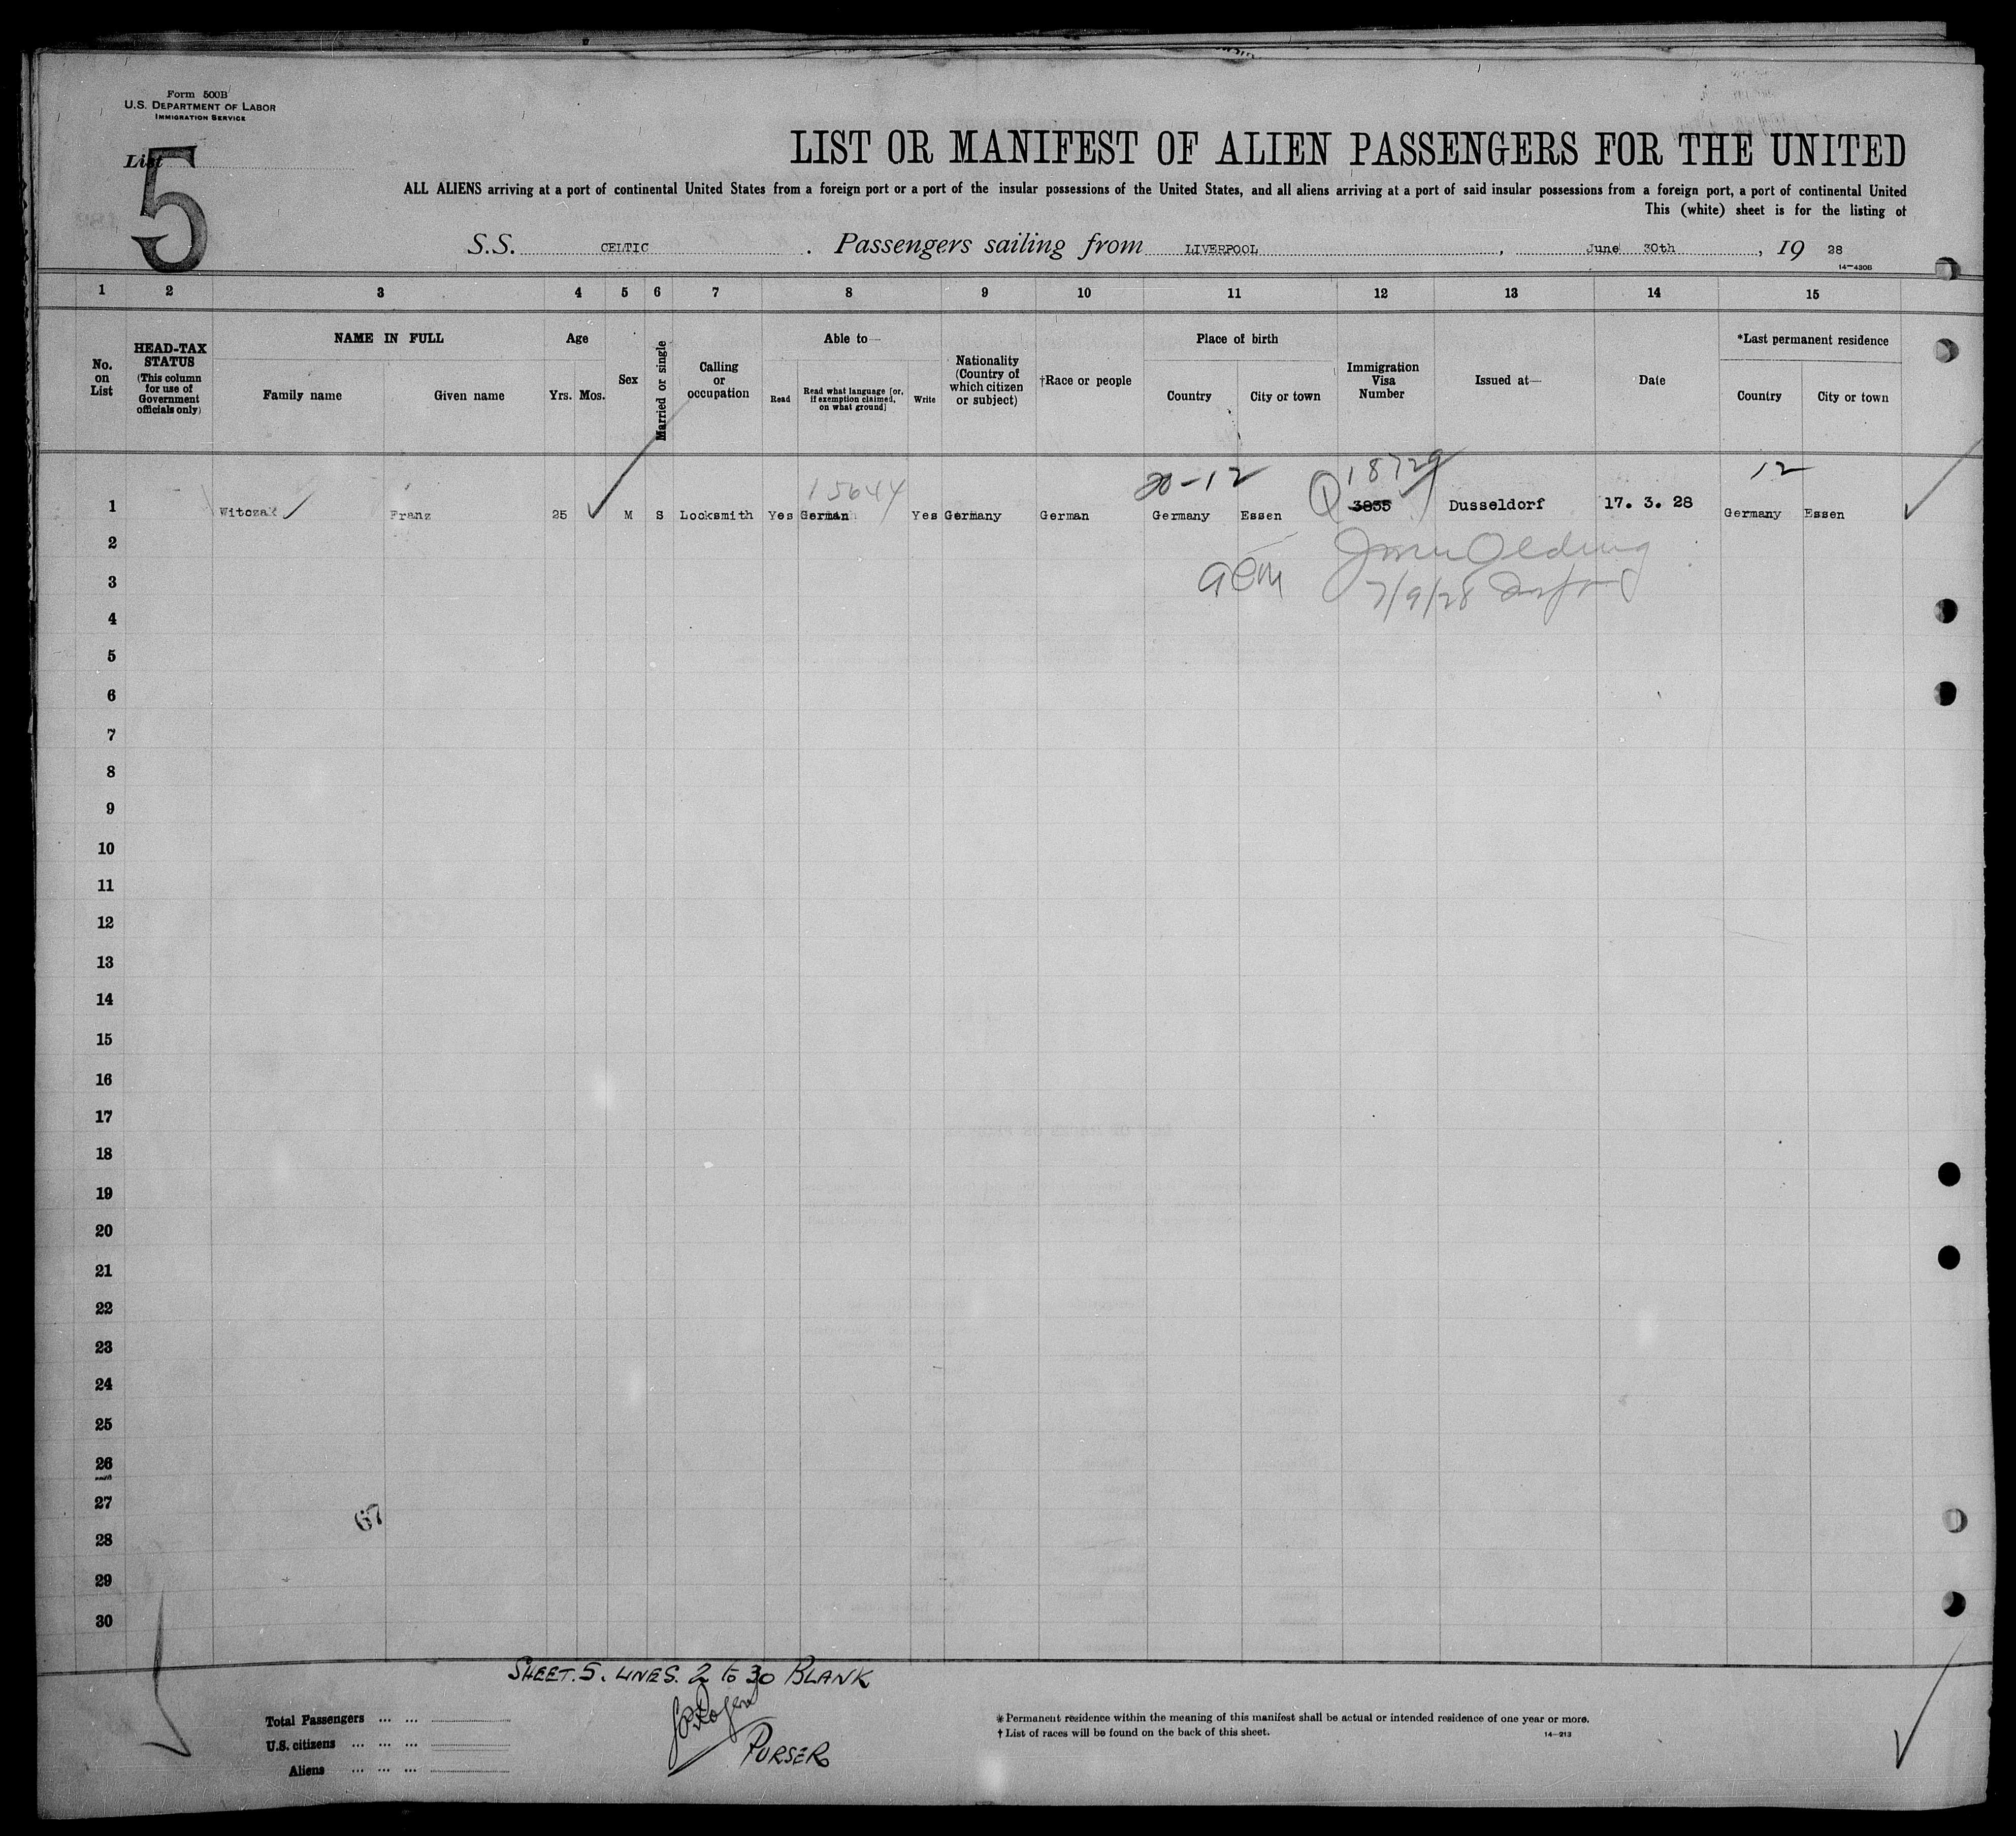 Form 500B
U.S. DEPARTMENT OF LABOR
IMMIGRATION SERVICE
List 5
LIST OR MANIFEST OF ALIEN PASSENGERS FOR THE UNITED
ALL ALIENS arriving at a port of continental United States from a foreign port or a port of the insular possessions of the United States, and all aliens arriving at a port of said insular possessions from a foreign port, a port of continental United
This (white) sheet is for the listing of
S.S. CELTIC. Passengers sailing from LIVERPOOL, June 30th, 19 28
14—430B
1 2 3 4 5 6 7 8 9 10 11 12 13 14 15
No. on List
HEAD-TAX STATUS (This column for use of Government officials only)
NAME IN FULL
Family name Given name
Age
Yrs. Mos.
Sex
Married or single
Calling or occupation
Able to—
Read Read what language [or, if exemption claimed, on what ground] Write
Nationality (Country of which citizen or subject)
†Race or people
Place of birth
Country City or town
Immigration Visa Number
Issued at—
Date
*Last permanent residence
Country City or town
15644 20-12 18729 12
1 Witczak Franz 25 M S Locksmith Yes German Yes Germany German Germany Essen 3855 Dusseldorf 17. 3. 28 Germany Essen
2
3
7/9/28
4
5
6
7
8
9
10
11
12
13
14
15
16
17
18
19
20
21
22
23
24
25
26
27
67
28
29
30
SHEET. 5. LINES. 2 to 30 BLANK
PURSER
Total Passengers ... ...
U.S. citizens ... ... ...
Aliens ... ... ...
* Permanent residence within the meaning of this manifest shall be actual or intended residence of one year or more.
† List of races will be found on the back of this sheet. 14—213